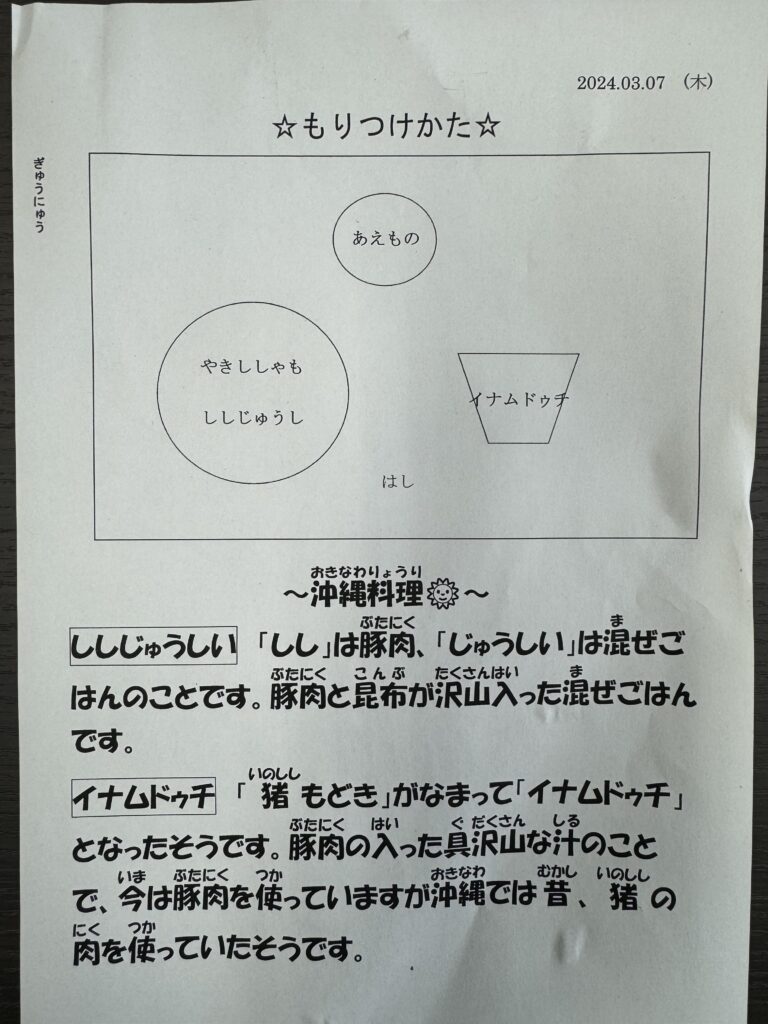 2024.03.07 (木)
☆もりつけかた☆
ぎゅうにゅう
あえもの
やきししゃも
ししじゅうし
イナムドゥチ
はし
おきなわりょうり
～沖縄料理～
ぶたにく ま
ししじゅうしい 「しし」は豚肉、「じゅうしい」は混ぜご
ぶたにく こんぶ たくさんはい ま
はんのことです。豚肉と昆布が沢山入った混ぜごはん
です。
いのしし
イナムドゥチ 「猪もどき」がなまって「イナムドゥチ」
ぶたにく はい ぐ だくさん しる
となったそうです。豚肉の入った具沢山な汁のこと
いま ぶたにく つか おきなわ むかし いのしし
で、今は豚肉を使っていますが沖縄では昔、猪の
にく つか
肉を使っていたそうです。